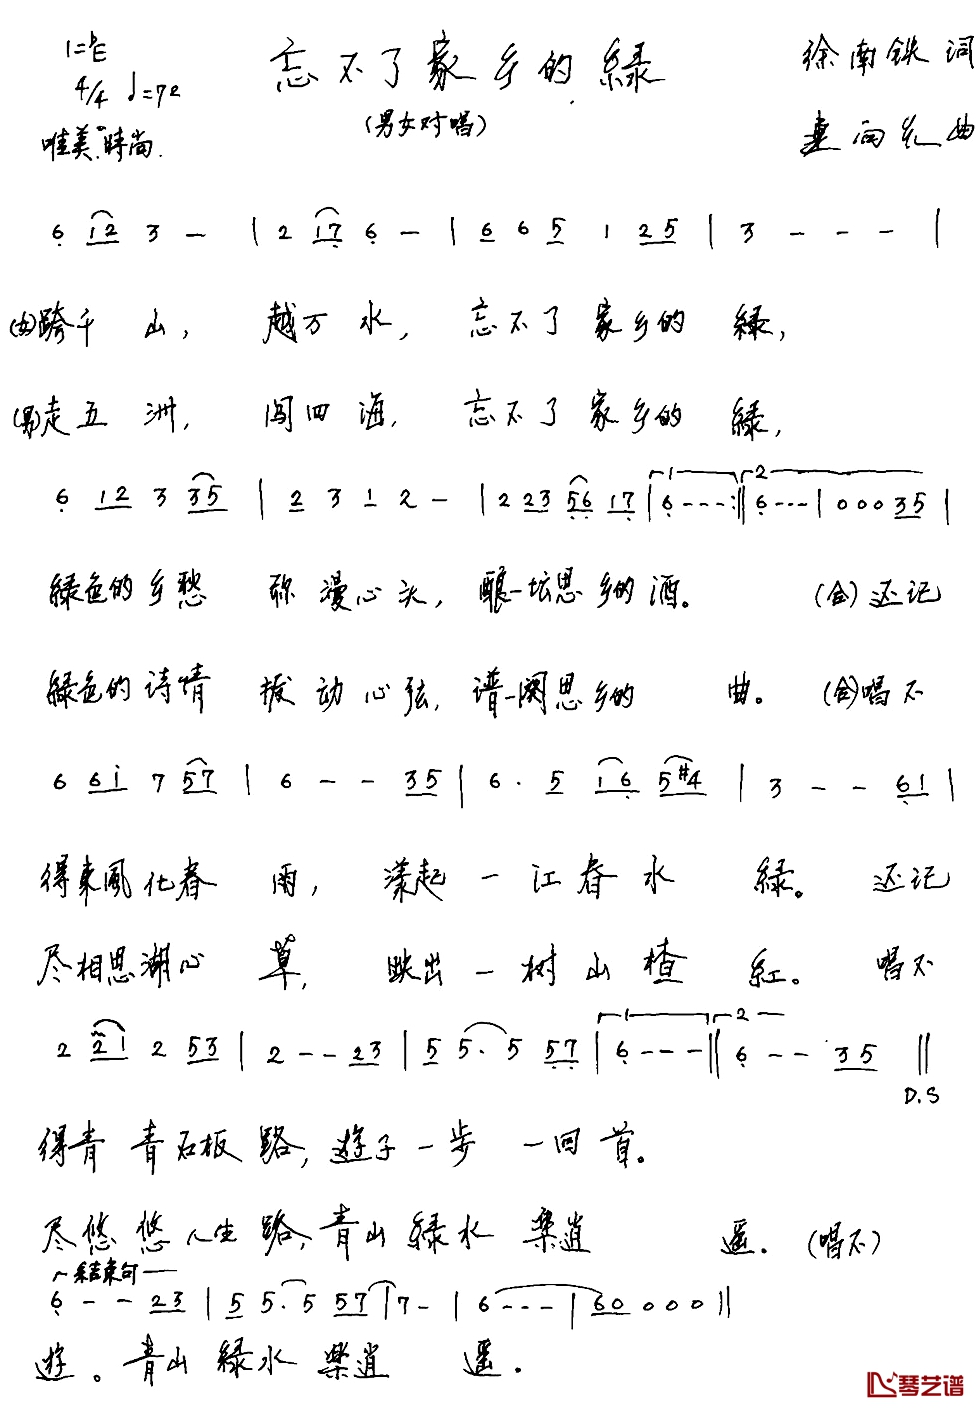 1=♭E
忘不了家乡的緑
徐南铁 词
4/4 ♩=72
(男女对唱)
唯美.時尚.
向元 曲
6 12 3 - | 2 17 6 - | 6 6 5 1 25 | 3 - - - |
(女)跨千山, 越万水, 忘不了家乡的緑,
(男)走五洲, 闯四海, 忘不了家乡的緑,
6 12 3 35 | 2 3 1 2 - | 2 23 56 17 | 1 6 - - - :‖ 2 6 - - - | 0 0 0 35 |
緑色的乡愁 弥漫心头, 酿一坛思乡的酒。 (合)还记
緑色的诗情 拨动心弦, 谱一阕思乡的曲。 (合)唱不
6 61 7 57 | 6 - - 35 | 6 . 5 16 5#4 | 3 - - 61 |
得東風化春雨, 漾起一江春水緑。 还记
尽相思湖心草, 映出一树山楂紅。 唱不
2 21 2 53 | 2 - - 23 | 5 5. 5 57 | 1 6 - - - ‖ 2 6 - - 35 ‖
D.S
得青青石板路, 遊子一步一回首。
尽悠悠人生路, 青山緑水樂逍遥. (唱不)
結束句
6 - - 23 | 5 5. 5 57 | 7 - | 6 - - - | 60 0 0 0 ‖
遊。青山緑水樂逍遥.
琴艺谱